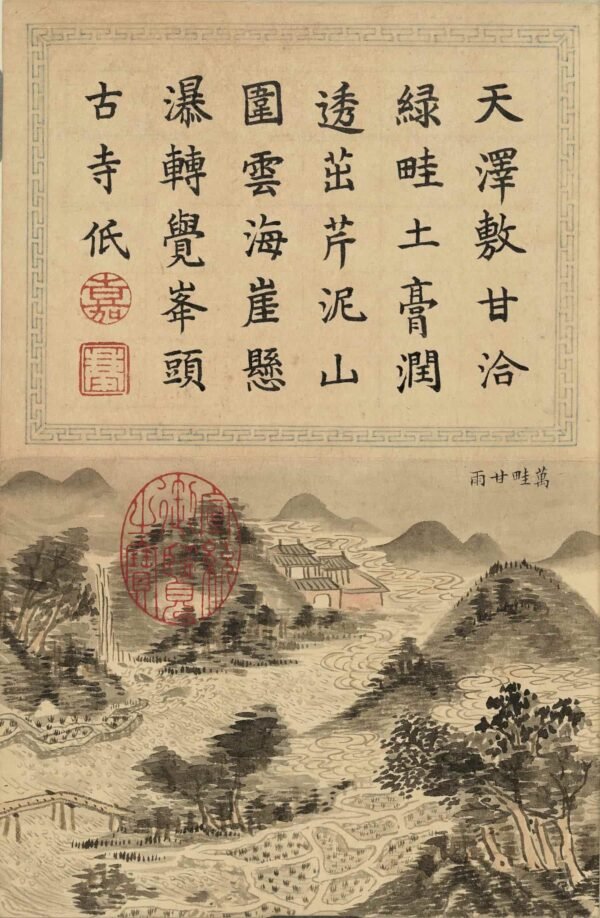 天澤敷甘洽
緑畦土膏潤
透茁芹泥山
圍雲海崖懸
瀑轉覺峯頭
古寺低
嘉
萬畦甘雨
宣統
御覽
之寶